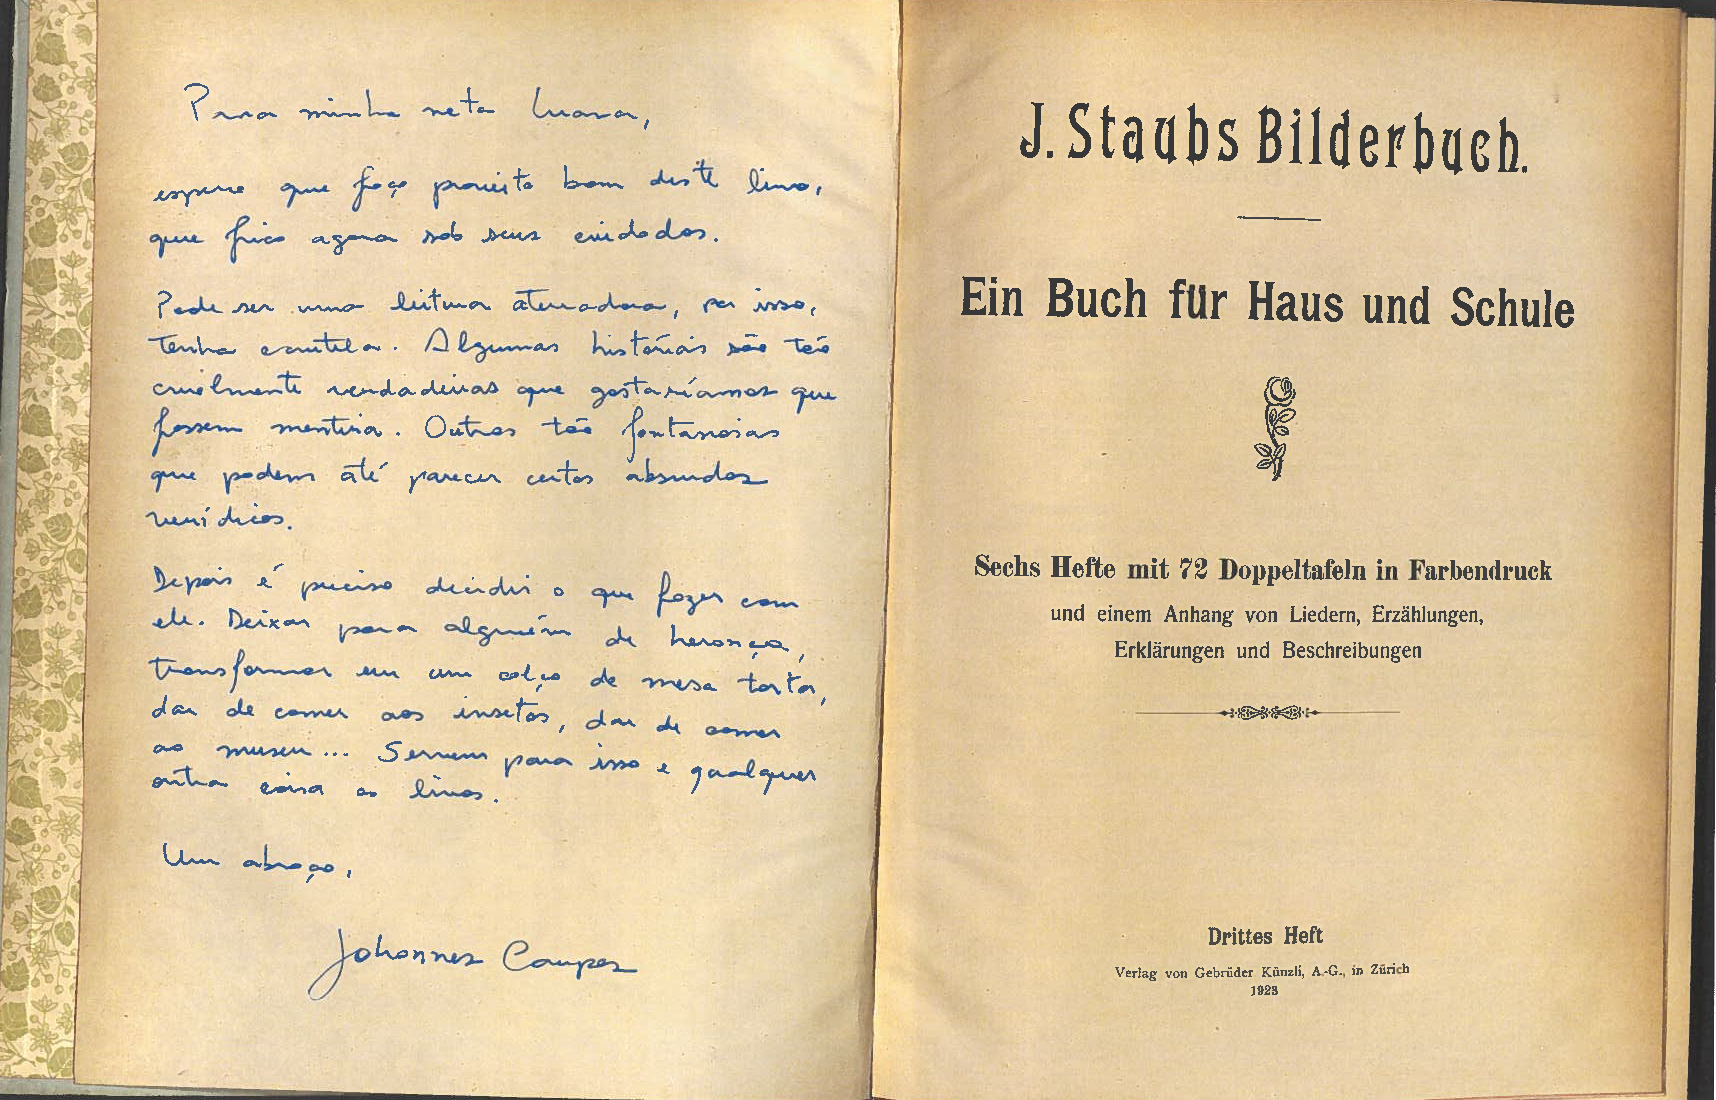 Para minha neta Luara,
espero que faça proveito bom deste livro,
que fica agora sob seus cuidados.
Pode ser uma leitura aterradora, por isso,
tenha cautela. Algumas histórias são tão
cruelmente verdadeiras que gostaríamos que
fossem mentira. Outras tão fantasiosas
que podem até parecer certos absurdos
verídicos.
Depois é preciso decidir o que fazer com
ele. Deixar para alguém de herança,
transformar em um calço de mesa torta,
dar de comer aos insetos, dar de comer
ao museu... Servem para isso e qualquer
outra coisa os livros.
Um abraço,
Johannes
J. Staubs Bilderbuch.
Ein Buch für Haus und Schule
Sechs Hefte mit 72 Doppeltafeln in Farbendruck
und einem Anhang von Liedern, Erzählungen,
Erklärungen und Beschreibungen
Drittes Heft
Verlag von Gebrüder Künzli, A.-G., in Zürich
1923